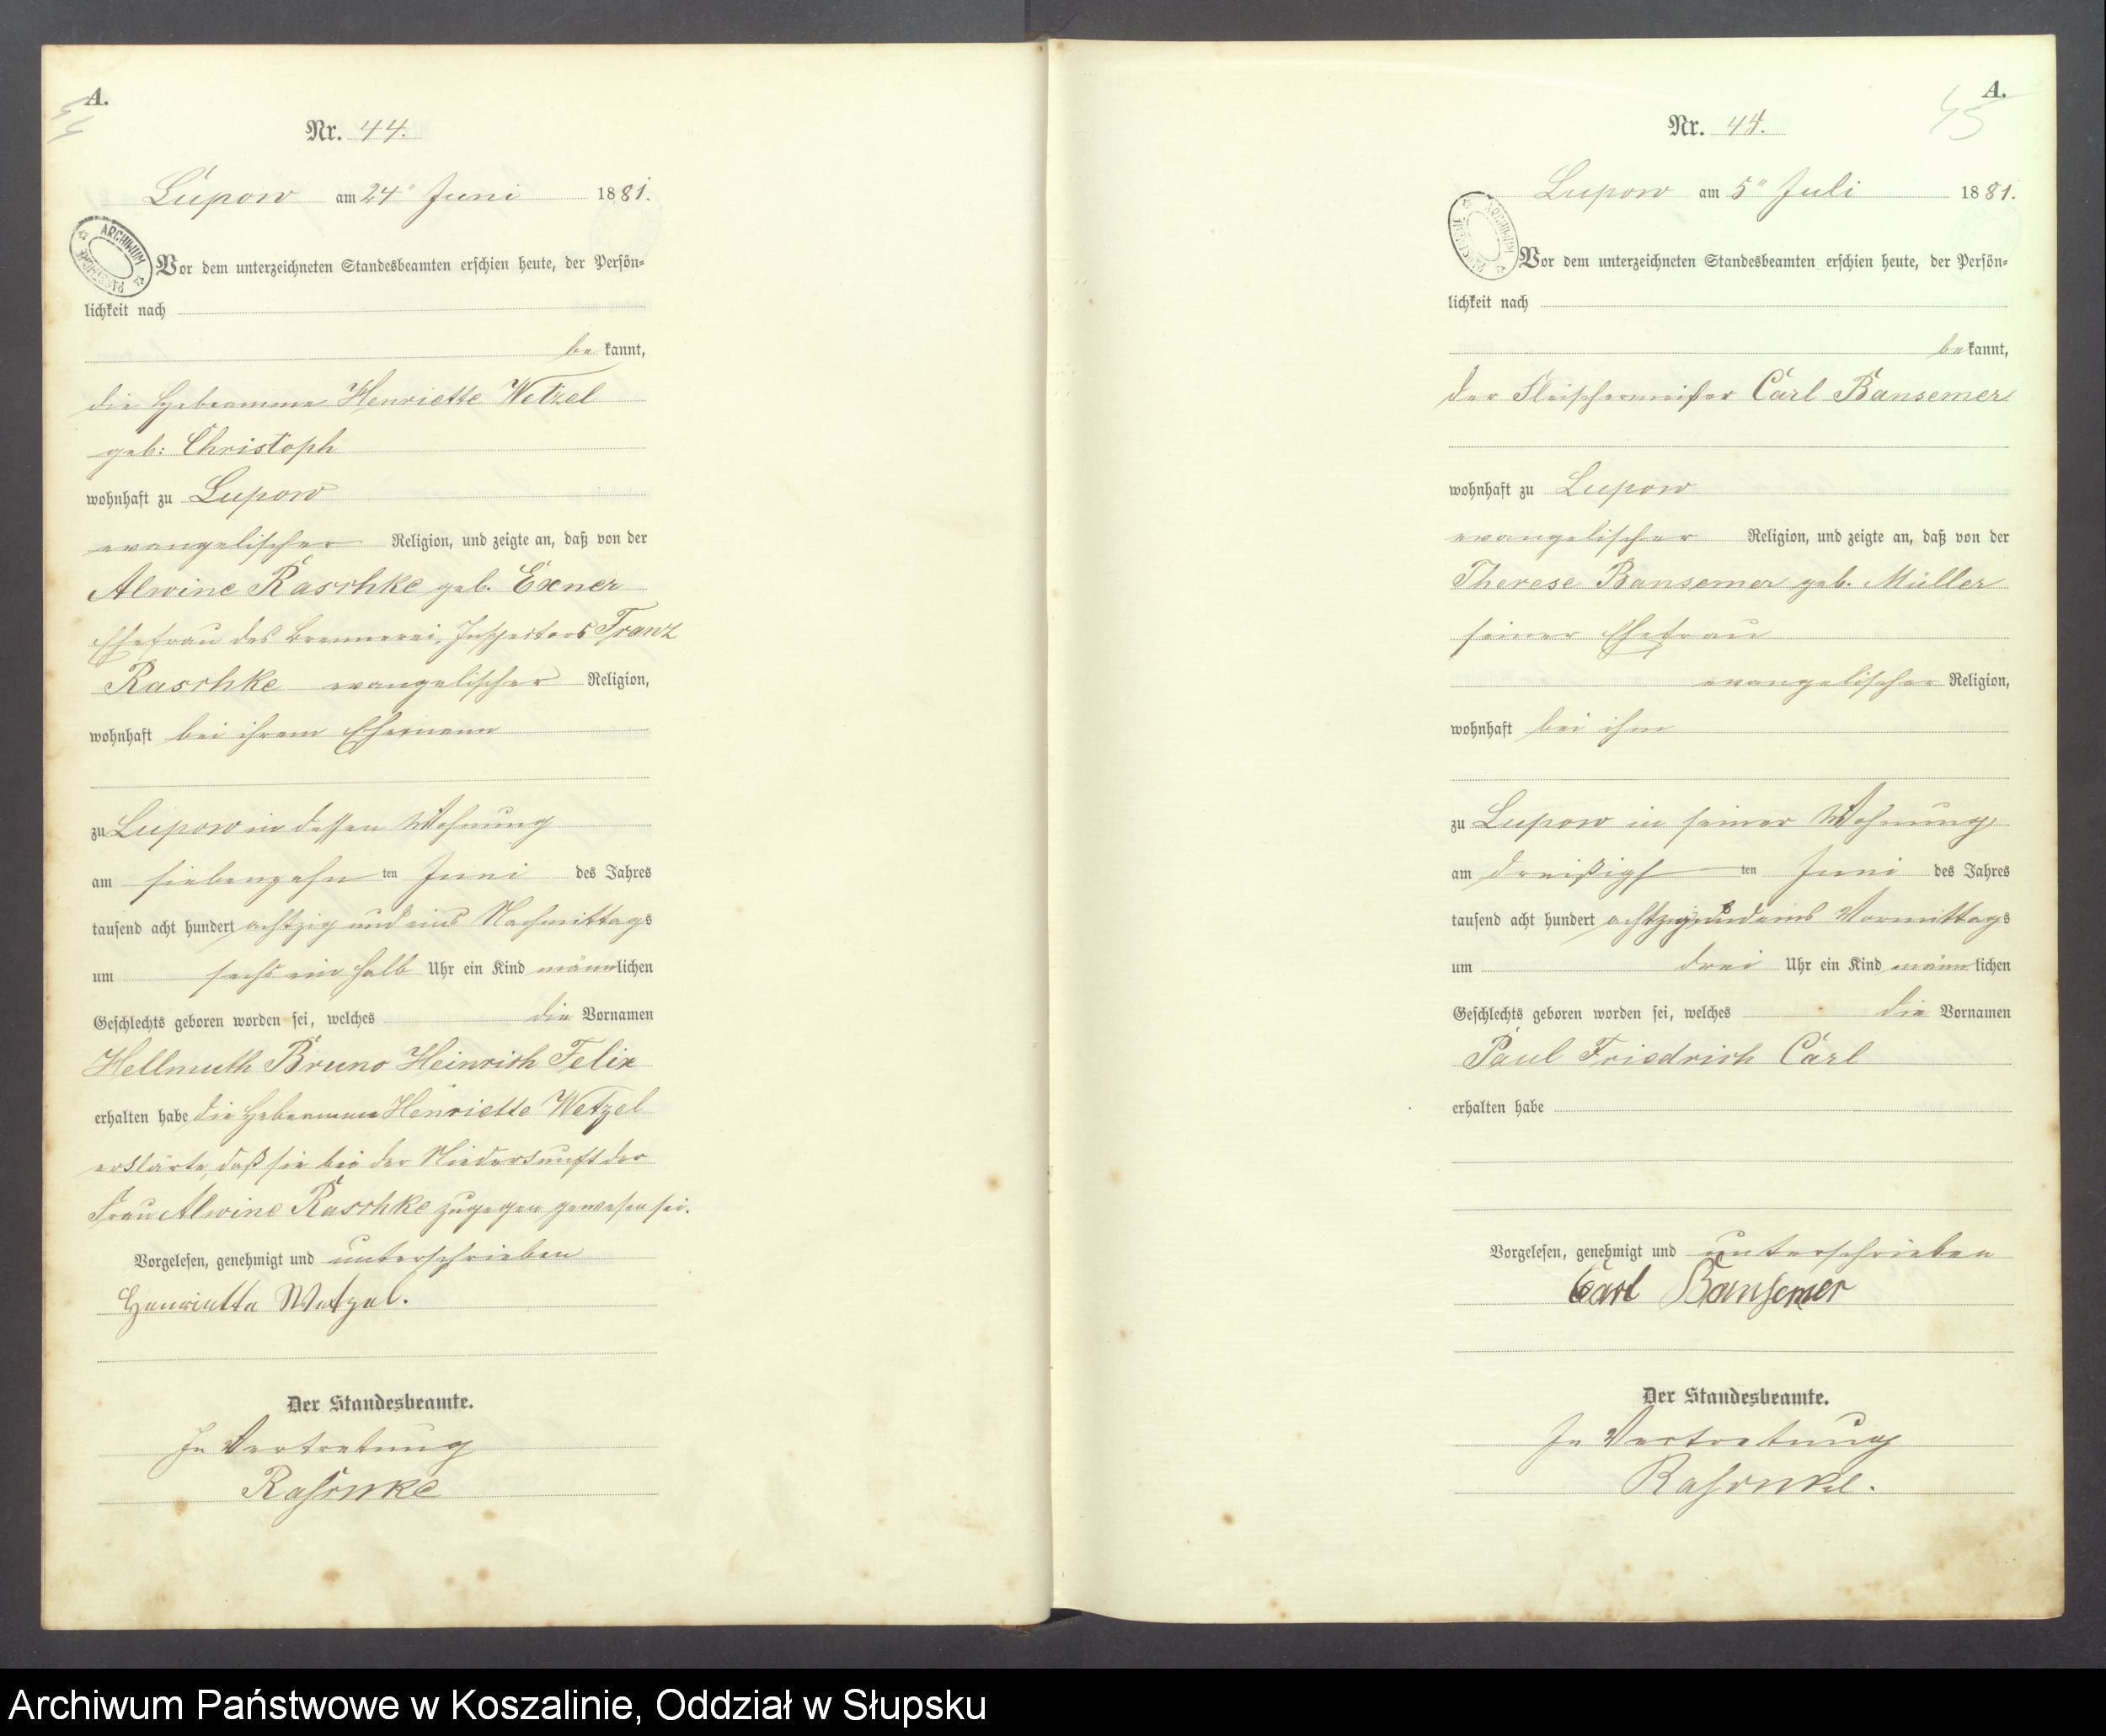 A.
44
Nr. 44.
Lupow am 24" Juni 1881.
ARCHIWUM PAŃSTWOWE
Vor dem unterzeichneten Standesbeamten erschien heute, der Persön-
lichkeit nach
be kannt,
die Hebeamme Henriette Wetzel
geb: Christoph
wohnhaft zu Lupow
evangelischer Religion, und zeigte an, daß von der
Alwine Raschke geb. Exner
Ehefrau des Brennerei-Inspectors Franz
Raschke evangelischer Religion,
wohnhaft bei ihrem Ehemann
zu Lupow in dessen Wohnung
am siebenzehn ten Juni des Jahres
tausend acht hundert achtzig und eins Nachmittags
um sechs ein halb Uhr ein Kind männlichen
Geschlechts geboren worden sei, welches die Vornamen
Hellmuth Bruno Heinrich Felix
erhalten habe die Hebeamme Henriette Wetzel
erklärte, daß sie bei der Niederkunft der
Frau Alwine Raschke zugegen gewesen sei.
Vorgelesen, genehmigt und unterschrieben
Henriette Wetzel.
Der Standesbeamte.
In Vertretung
A.
45
Nr. 45.
Lupow am 5" Juli 1881.
ARCHIWUM PAŃSTWOWE
Vor dem unterzeichneten Standesbeamten erschien heute, der Persön-
lichkeit nach
be kannt,
der Fleischermeister Carl Bansemer
wohnhaft zu Lupow
evangelischer Religion, und zeigte an, daß von der
Therese Bansemer geb. Müller
seiner Ehefrau
evangelischer Religion,
wohnhaft bei ihm
zu Lupow in seiner Wohnung
am dreißigs ten Juni des Jahres
tausend acht hundert achtzig und eins Vormittags
um drei Uhr ein Kind männlichen
Geschlechts geboren worden sei, welches die Vornamen
Paul Friedrich Carl
erhalten habe
Vorgelesen, genehmigt und unterschrieben
Carl Bansemer
Der Standesbeamte.
In Vertretung
Archiwum Państwowe w Koszalinie, Oddział w Słupsku